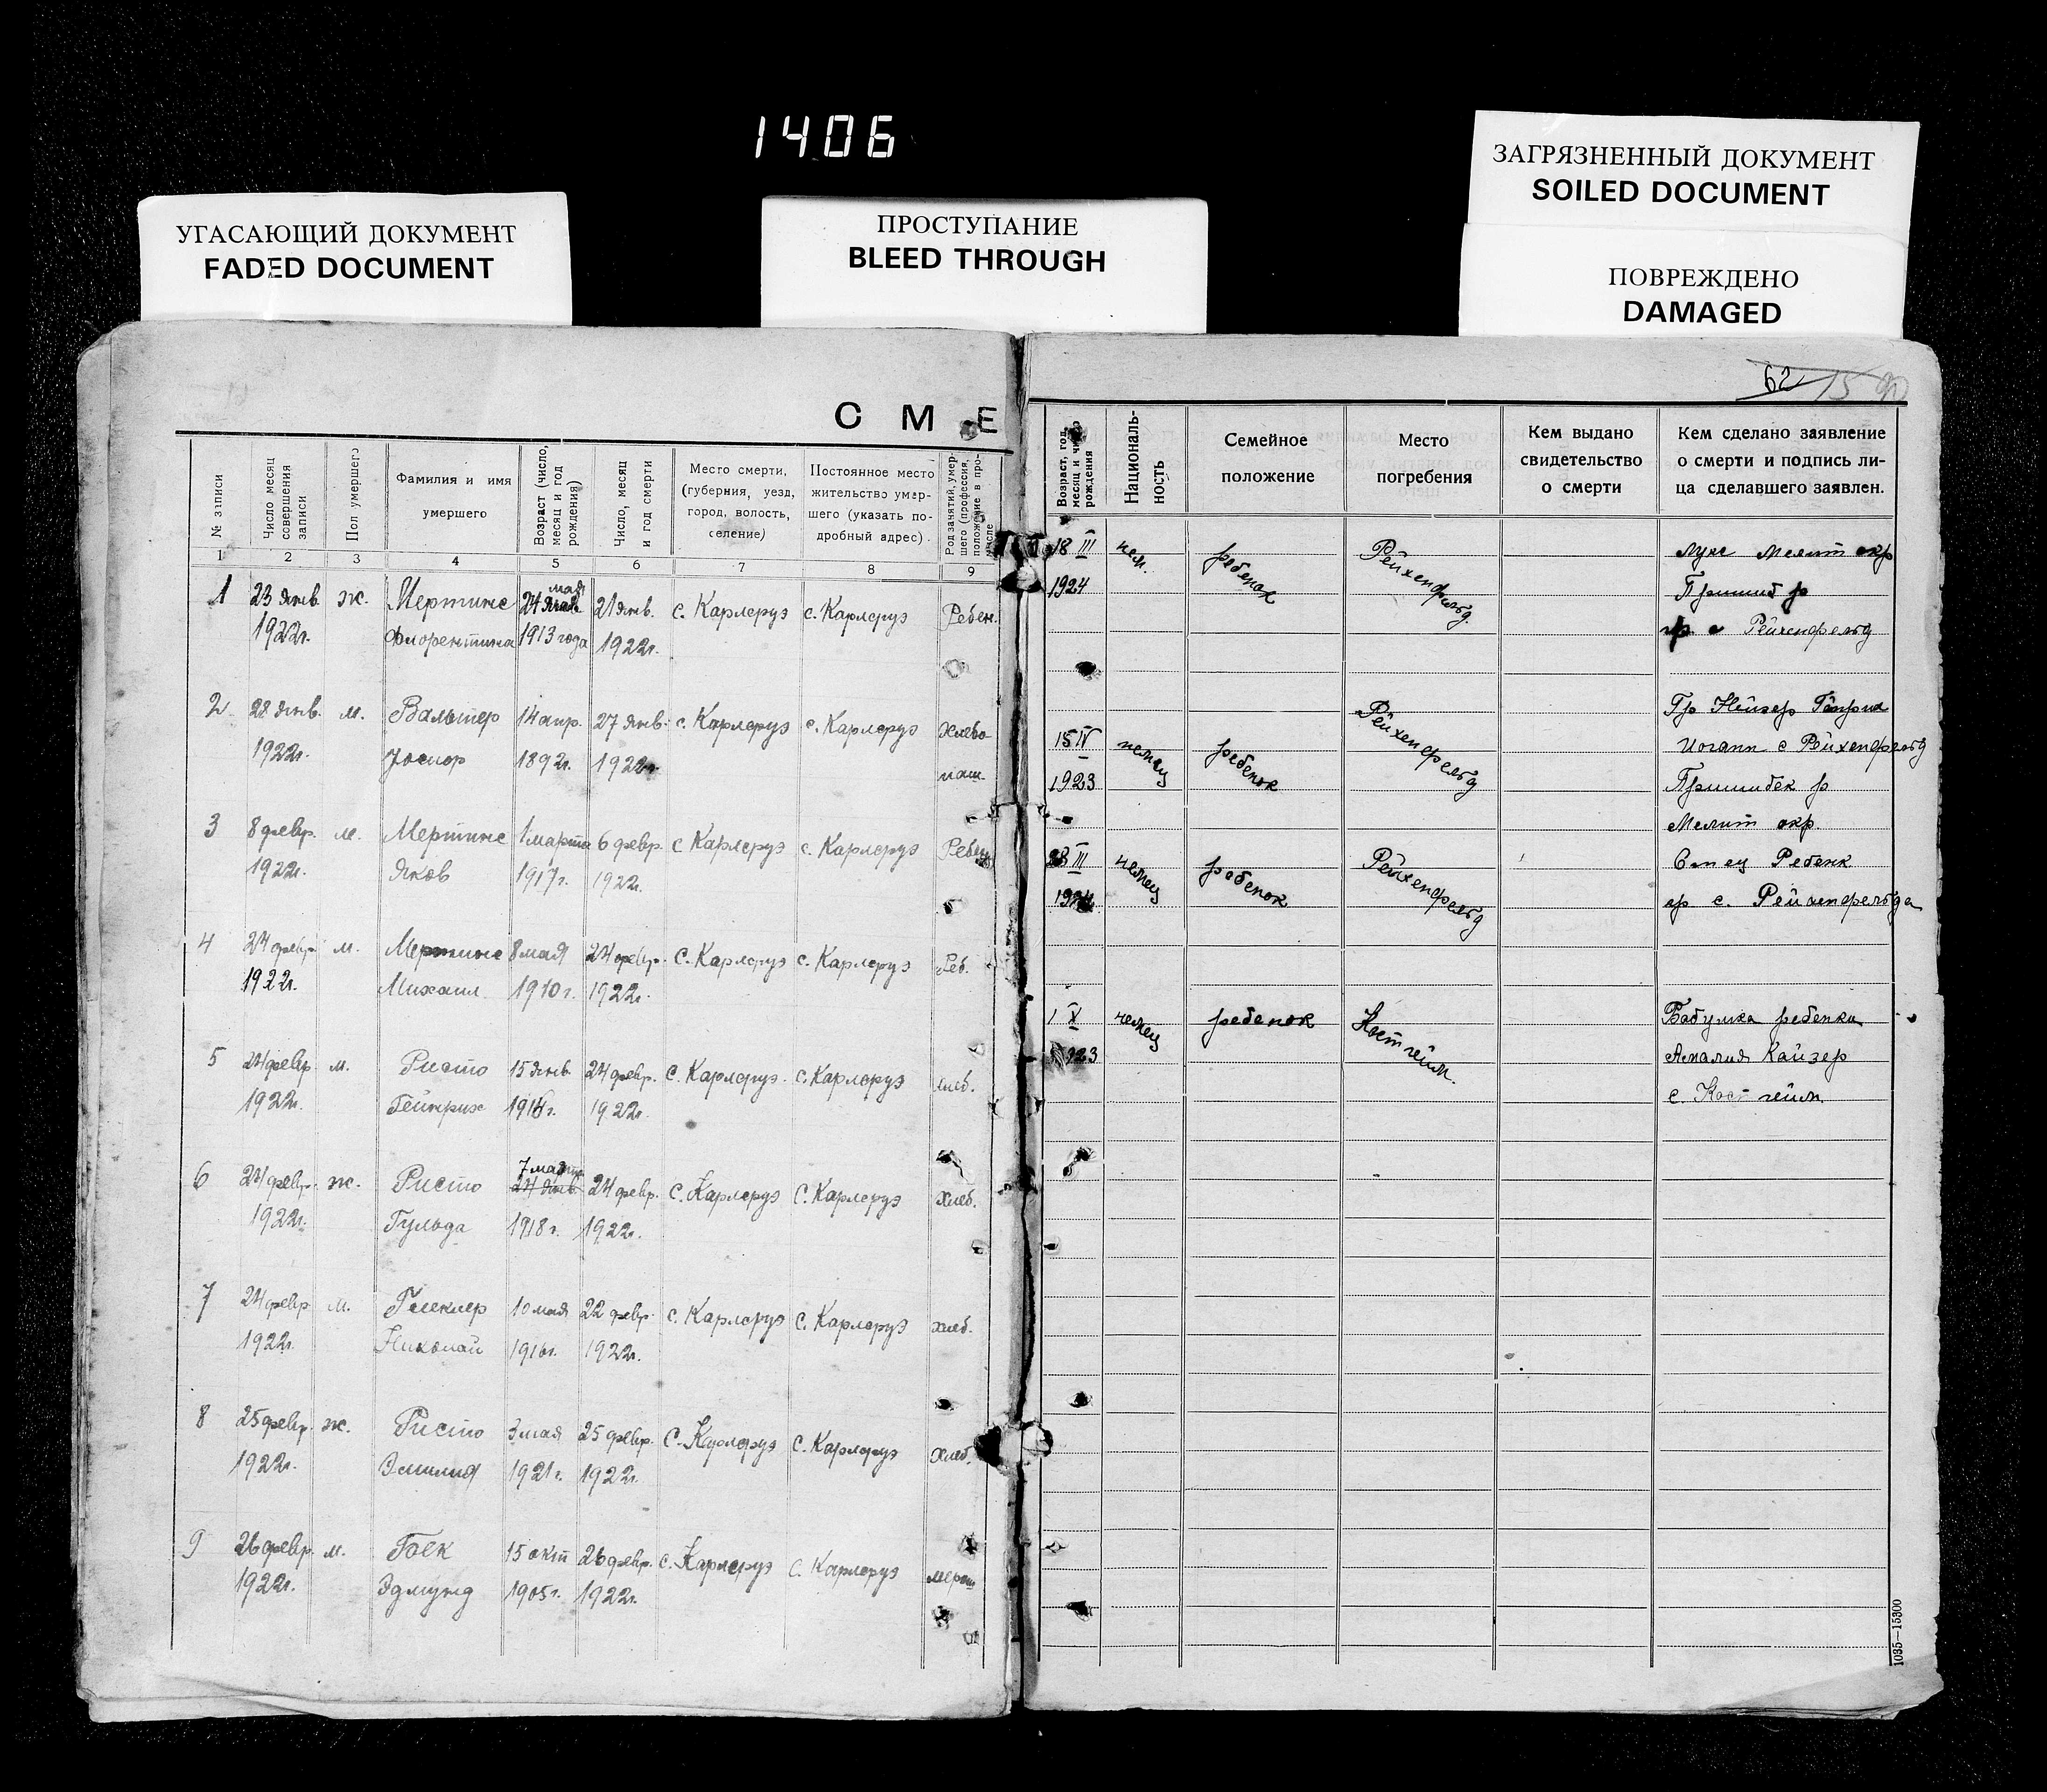 1406
УГАСАЮЩИЙ ДОКУМЕНТ
FADED DOCUMENT
ПРОСТУПАНИЕ
BLEED THROUGH
ЗАГРЯЗНЕННЫЙ ДОКУМЕНТ
SOILED DOCUMENT
ПОВРЕЖДЕНО
DAMAGED
С М Е
№ записи
Число месяц совершения записи
Пол умершего
Фамилия и имя умершего
Возраст (число, месяц и год рождения)
Число, месяц и год смерти
Место смерти, (губерния, уезд, город, волость, селение)
Постоянное место жительство умершего (указать подробный адрес).
Род занятий, умершего (профессия, положение в промысле
1 2 3 4 5 6 7 8 9
1 23 янв. ж. Мертинс 24 мая 21 янв. с. Карлсруэ с. Карлсруэ Ребен.
1922г. Флорентина 1913 года 1922г.
2 28 янв. м. Вальтер 14 апр. 27 янв. с. Карлсруэ с. Карлсруэ хлебо
1922г. Иосиф 1892г. 1922г. паш.
3 8 февр. м. Мертинс 1 марта 6 февр. с Карлсруэ с. Карлсруэ Ребен
1922г. Яков 1917г. 1922г.
4 24 февр. м. Мертинс 8 мая 24 февр. С. Карлсруэ с. Карлсруэ Реб.
1922г. Михаил 1910г. 1922г.
5 24 февр. м. Ристо 15 янв. 24 февр. С. Карлсруэ. с. Карлсруэ хлеб.
1922г. Гейнрих 1922г.
6 24 февр. ж. Ристо 7 марта 24 янв. 24 февр. С. Карлсруэ С. Карлсруэ хлеб.
1922г. Гульда 1918г. 1922г.
7 24 февр. м. Глеклер 10 мая 22 февр. с. Карлсруэ С. Карлсруэ хлеб.
1922г. Николай 1916г. 1922г.
8 25 февр. ж. Ристо 3 мая 25 февр. С. Карлсруэ С. Карлсруэ хлеб.
1922г. Эмилия 1921г. 1922г.
9 26 февр. м. Бек 15 окт 26 февр. с. Карлсруэ С. Карлсруэ
1922г. Эдмунд 1905г. 1922г.
62 15
Возраст, год, месяц и число рождения
Национальность
Семейное положение
Место погребения
Кем выдано свидетельство о смерти
Кем сделано заявление о смерти и подпись лица сделавшего заявлен.
18 III нем. ребенок Рейхенфельд. Мелит окр
1924 Пришиб р
с Рейхенфельд
Гр Генрих
15 IV немец ребенок Рейхенфельд Иоганн с Рейхенфельд
1923 Пришибск р
Мелит окр.
23 III немец ребенок Рейхенфельд Отец Ребенк
1924 гр с. Рейхенфельда
1 X немец ребенок Костгейм. Бабушка ребенка
1923 Амалия Кайзер
с. Костгейм.
1035—15300